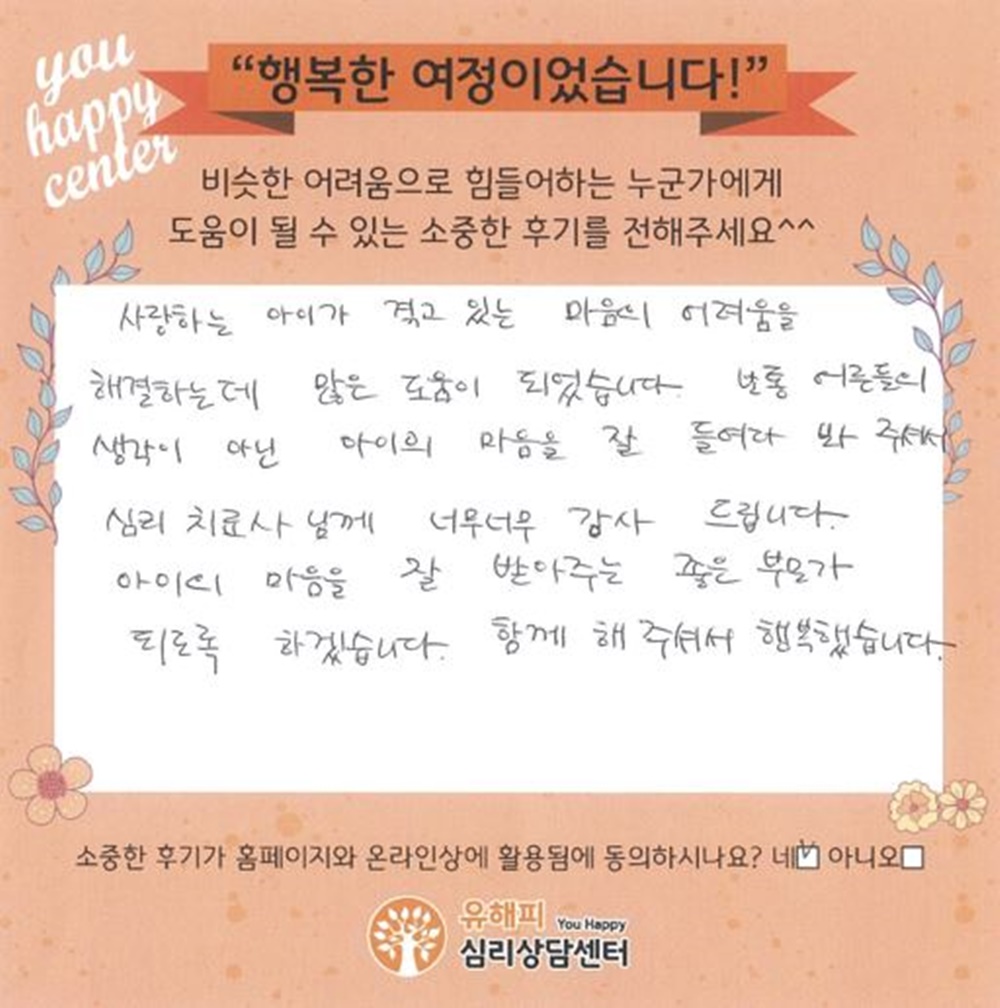 you
happy
center
“행복한 여정이었습니다!”
비슷한 어려움으로 힘들어하는 누군가에게
도움이 될 수 있는 소중한 후기를 전해주세요^^
사랑하는 아이가 겪고 있는 마음의 어려움을
해결하는데 많은 도움이 되었습니다. 보통 어른들의
생각이 아닌 아이의 마음을 잘 들여다 봐 주셔서
심리 치료사 님께 너무너무 감사 드립니다.
아이의 마음을 잘 받아주는 좋은 부모가
되도록 하겠습니다. 함께 해 주셔서 행복했습니다.
소중한 후기가 홈페이지와 온라인상에 활용됨에 동의하시나요? 네☑ 아니오☐
유해피 You Happy
심리상담센터